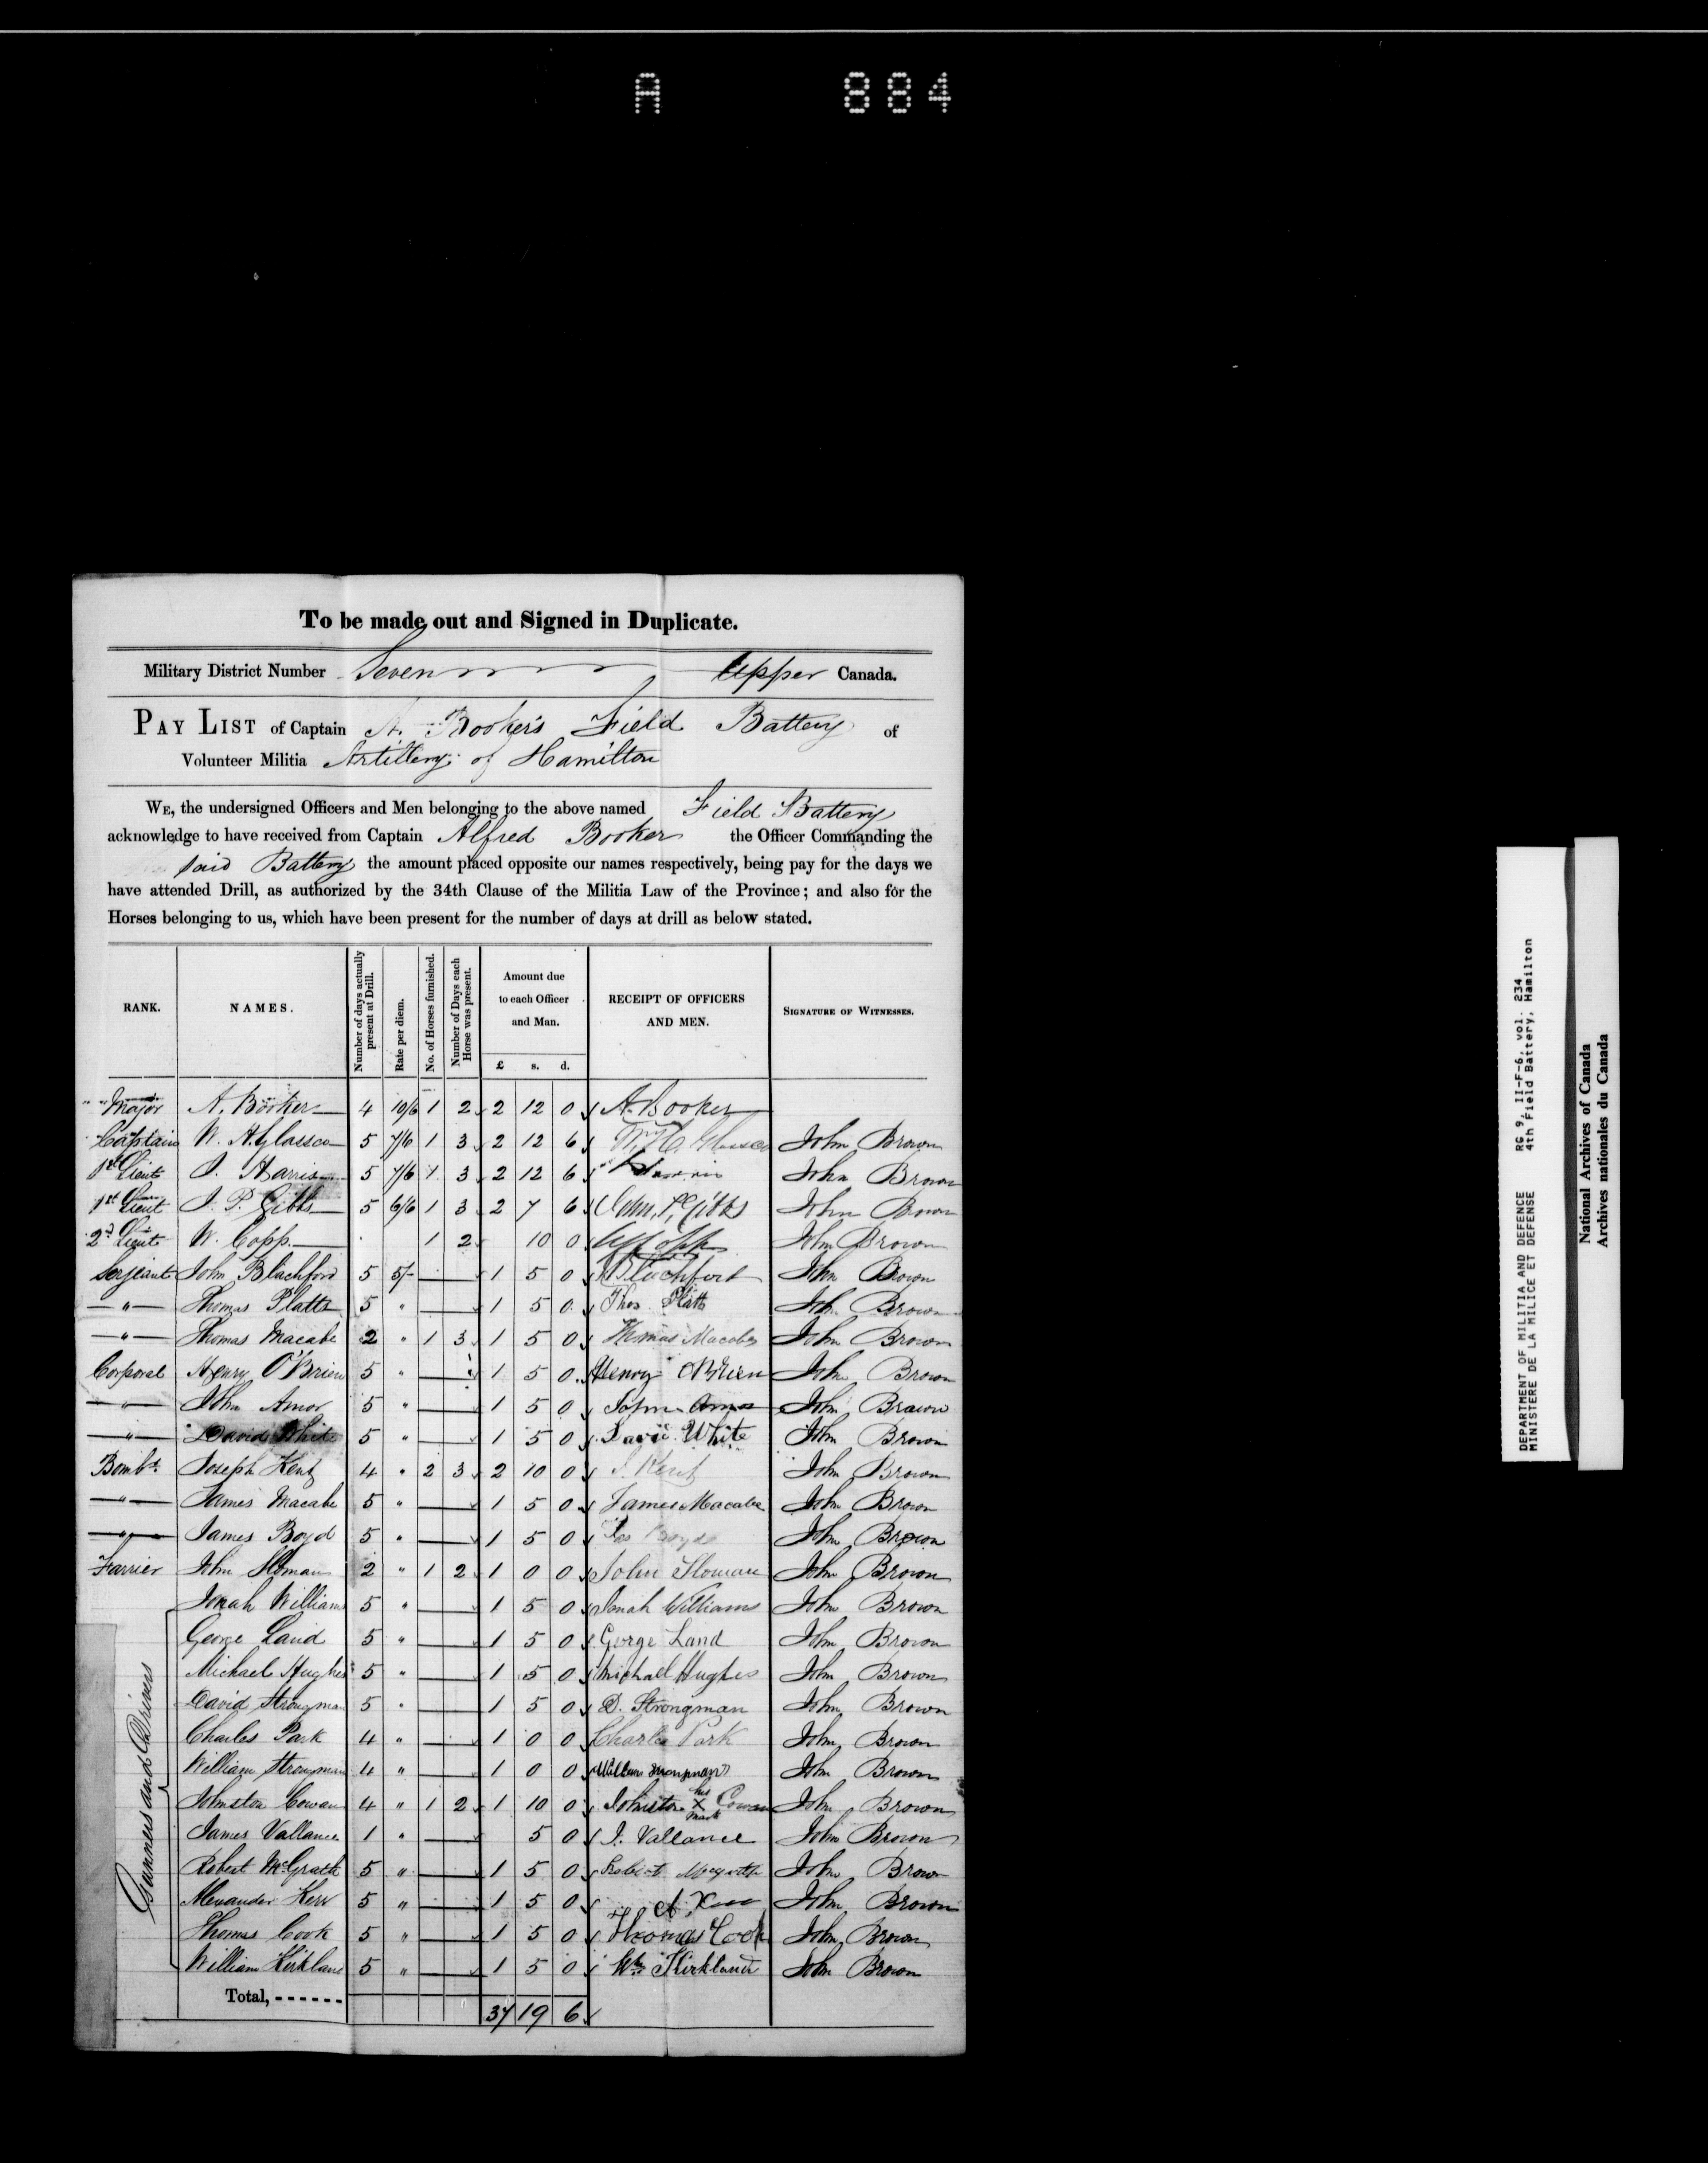 A 884
To be made out and Signed in Duplicate.
Military District Number Seven Upper Canada.
PAY LIST of Captain A. Booker's Field Battery of
Volunteer Militia Artillery of Hamilton
WE, the undersigned Officers and Men belonging to the above named Field Battery
acknowledge to have received from Captain Alfred Booker the Officer Commanding the
said Battery the amount placed opposite our names respectively, being pay for the days we
have attended Drill, as authorized by the 34th Clause of the Militia Law of the Province; and also for the
Horses belonging to us, which have been present for the number of days at drill as below stated.
RANK. NAMES. Number of days actually present at Drill. Rate per diem. No. of Horses furnished. Number of Days each Horse was present. Amount due to each Officer and Man. RECEIPT OF OFFICERS AND MEN. SIGNATURE OF WITNESSES.
£ s. d.
Major A. Booker 4 10/6 1 2 2 12 0 A. Booker
Captain W. H. Glassco 5 7/6 1 3 2 12 6 John Brown
1st Lieut Harris 5 7/6 1 3 2 12 6 John Brown
1st Lieut J. P. Gibbs 5 6/6 1 3 2 7 6 Gibbs John Brown
2d Lieut W. Copp 1 2 10 0 W Copp John Brown
Serjeant John Blachford 5 5/- 1 5 0 Blachford John Brown
" Thomas Platts 5 " 1 5 0 Thos Platts John Brown
" Thomas Macabe 2 " 1 3 1 5 0 Thomas Macabe John Brown
Corporal Henry O'Brien 5 " 1 5 0 Henry OBrien John Brown
" John Amor 5 " 1 5 0 John Amor John Brown
" David White 5 " 1 5 0 David White John Brown
Bombr. Joseph Kent 4 " 2 3 2 10 0 J. Kent John Brown
" James Macabe 5 " 1 5 0 James Macabe John Brown
" James Boyd 5 " 1 5 0 Jas Boyd John Brown
Farrier John Sloman 2 " 1 2 1 0 0 John Sloman John Brown
Gunners and Drivers
Jonah Williams 5 " 1 5 0 Jonah Williams John Brown
George Land 5 " 1 5 0 Gorge Land John Brown
Michael Hughes 5 " 1 5 0 Michael Hughes John Brown
David Strongman 5 " 1 5 0 D. Strongman John Brown
Charles Park 4 " 1 0 0 Charles Park John Brown
William Strongman 4 " 1 0 0 William Strongman John Brown
Johnston Cowan 4 " 1 2 1 10 0 Johnston his X mark Cowan John Brown
James Vallance 1 " 5 0 J. Vallance John Brown
Robert McGrath 5 " 1 5 0 Robert John Brown
Alexander Kerr 5 " 1 5 0 A Kerr John Brown
Thomas Cook 5 " 1 5 0 Thomas Cook John Brown
William Kirkland 5 " 1 5 0 Wm Kirkland John Brown
Total, - - - - - - 37 19 6
DEPARTMENT OF MILITIA AND DEFENCE RG 9, II-F-6, vol. 234
MINISTERE DE LA MILICE ET DEFENSE 4th Field Battery, Hamilton
National Archives of Canada
Archives nationales du Canada